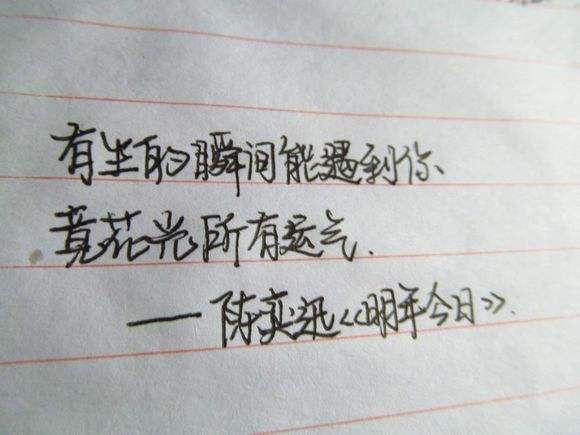 有生的瞬间能遇到你、
竟花光所有运气.
——陈奕迅《明年今日》.